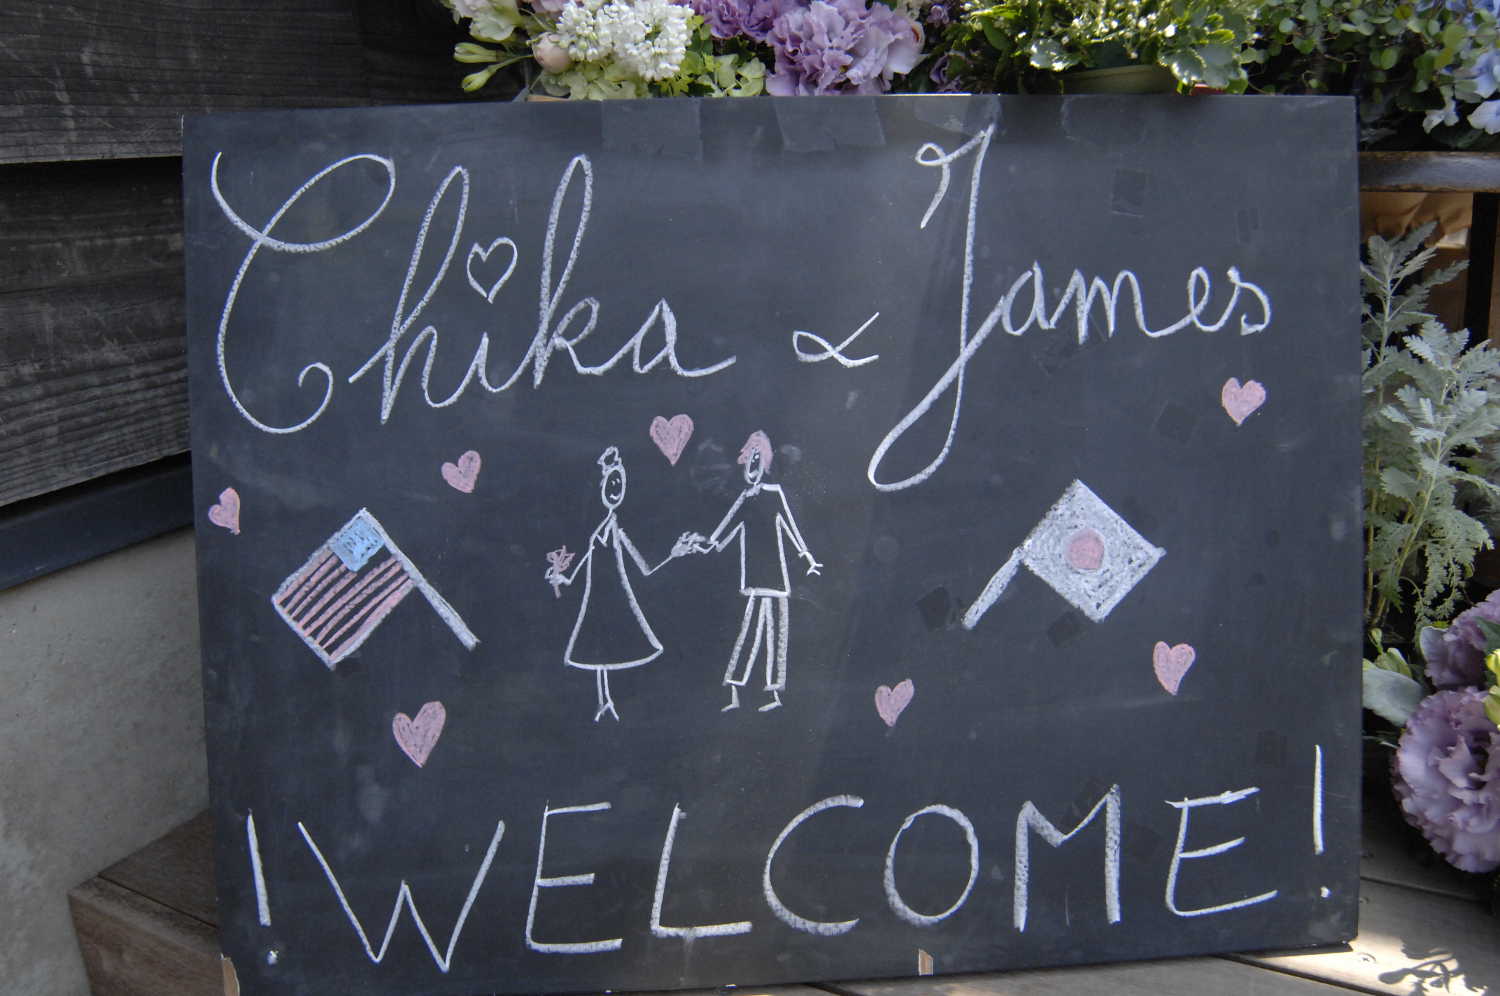 Chika & James
! WELCOME !